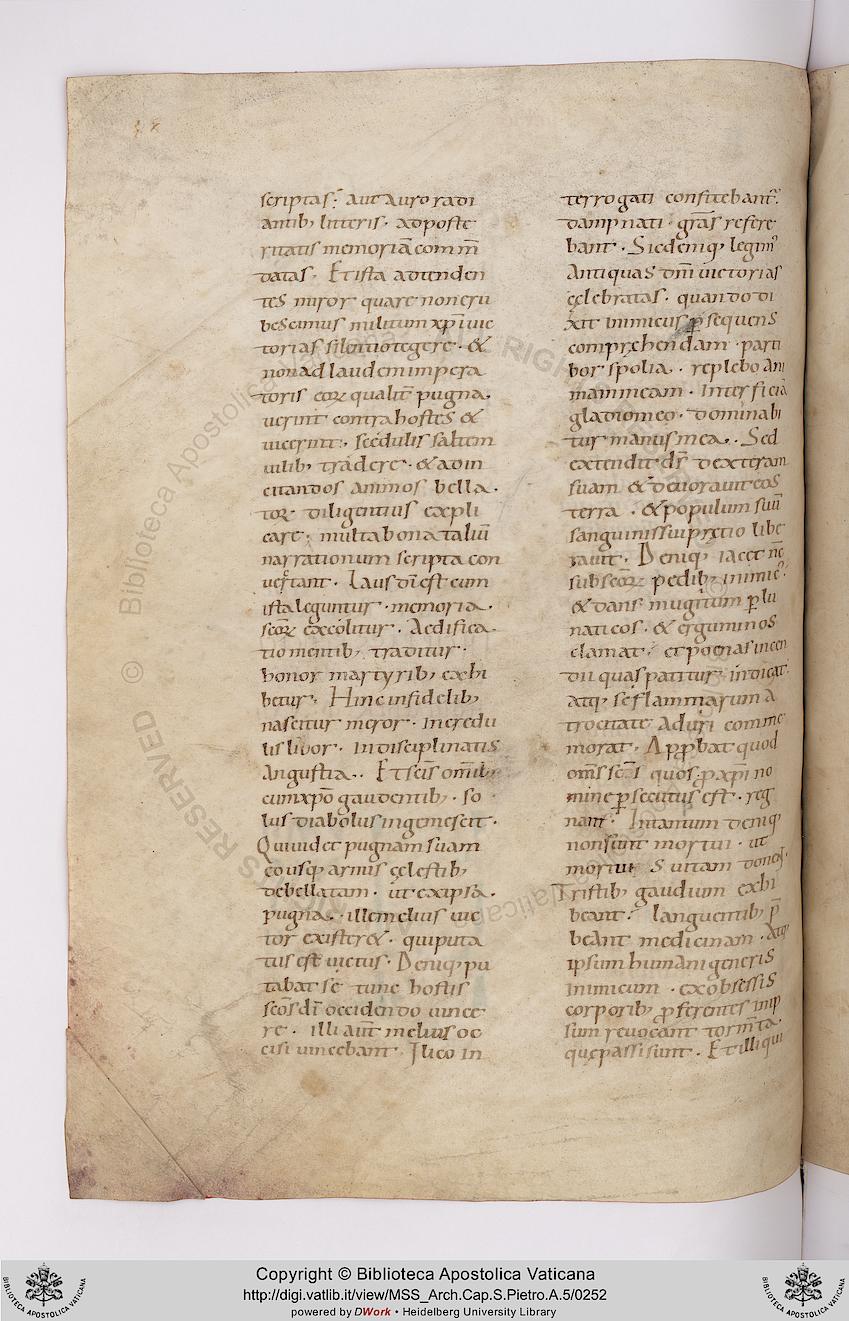 scriptas; aut auro radi
antib; litteris · ad poste
ritatis memoriā com m̄
datas · Et ista adtenden
tes miror quare non eru
bescimus militum xp̄i vic
torias silentio tegere · &
non ad laudem impera
toris eoꝝ qualit̄ pugna
uerint contra hostes &
uicerint · scedulis saltem
uilib; tradere · & ad in
citandos animos bella
toꝝ diligentius expli
care · multa bona taliū
narrationum scripta con
uertant · Laus dī est cum
ista leguntur · memoria
scōꝝ excolitur · Aedifica
tio mentib; traditur ·
honor martyrib; exhi
betur · Hinc infidelib;
nascitur meror · incredu
lis livor · Indisciplinatis
Angustia · Et scīs omīb;
cum xp̄o gaudentib; · so
lus diabolus ingemescit ·
Qui videt pugnam suam
eo usq; armis cęlestib;
debellatam · ut ex ipsa
pugna · ille melius vic
tor existeret · qui puta
tus est victus · Deniq; pu
tabat se tunc hostis
scōs dī occidendo vince
re · illi aut̄ melius oc
cisi vincebant · Ilico in
terrogati confitebant᷑ ·
dampnati · grās refere
bant · Sic deniq; legim᷒
Antiquas dn̄i victorias
cęlebratas · quando di
xit inimicus ꝑsequens
comprehendam · parti
bor spolia · replebo ani
mam meam · Interficiā
gladio meo · dominabi
tur manus mea · Sed
extendit dn̄s dexteram
suam & devoravit eos
terra · & populum suū
sanguinis sui pretio libe
ravit · Deniq; iacet nc̄
sub scōꝝ pedib; inimic᷒
& dans mugitum ꝑ lu
naticos · & erguminos
clamat; et poenas incen
dii quas patitur indicat
atq; se flammarum a
trocitate Aduri comme
morat · Approbat quod
om̄s scī quos pro xp̄i no
mine ꝑsecutus est · reg
nant · Intantum deniq;
non sunt mortui · ut
mortuis vitam donent ·
Tristib; gaudium exhi
beant; languentib; p̄
beant medicinam · Atq;
ipsum humani generis
inimicum · ex obsessis
corporib; proferentes imp
sum revocent torm̄ta
quę passi sunt · Et illi qui
Copyright © Biblioteca Apostolica Vaticana
http://digi.vatlib.it/view/MSS_Arch.Cap.S.Pietro.A.5/0252
powered by DWork • Heidelberg University Library